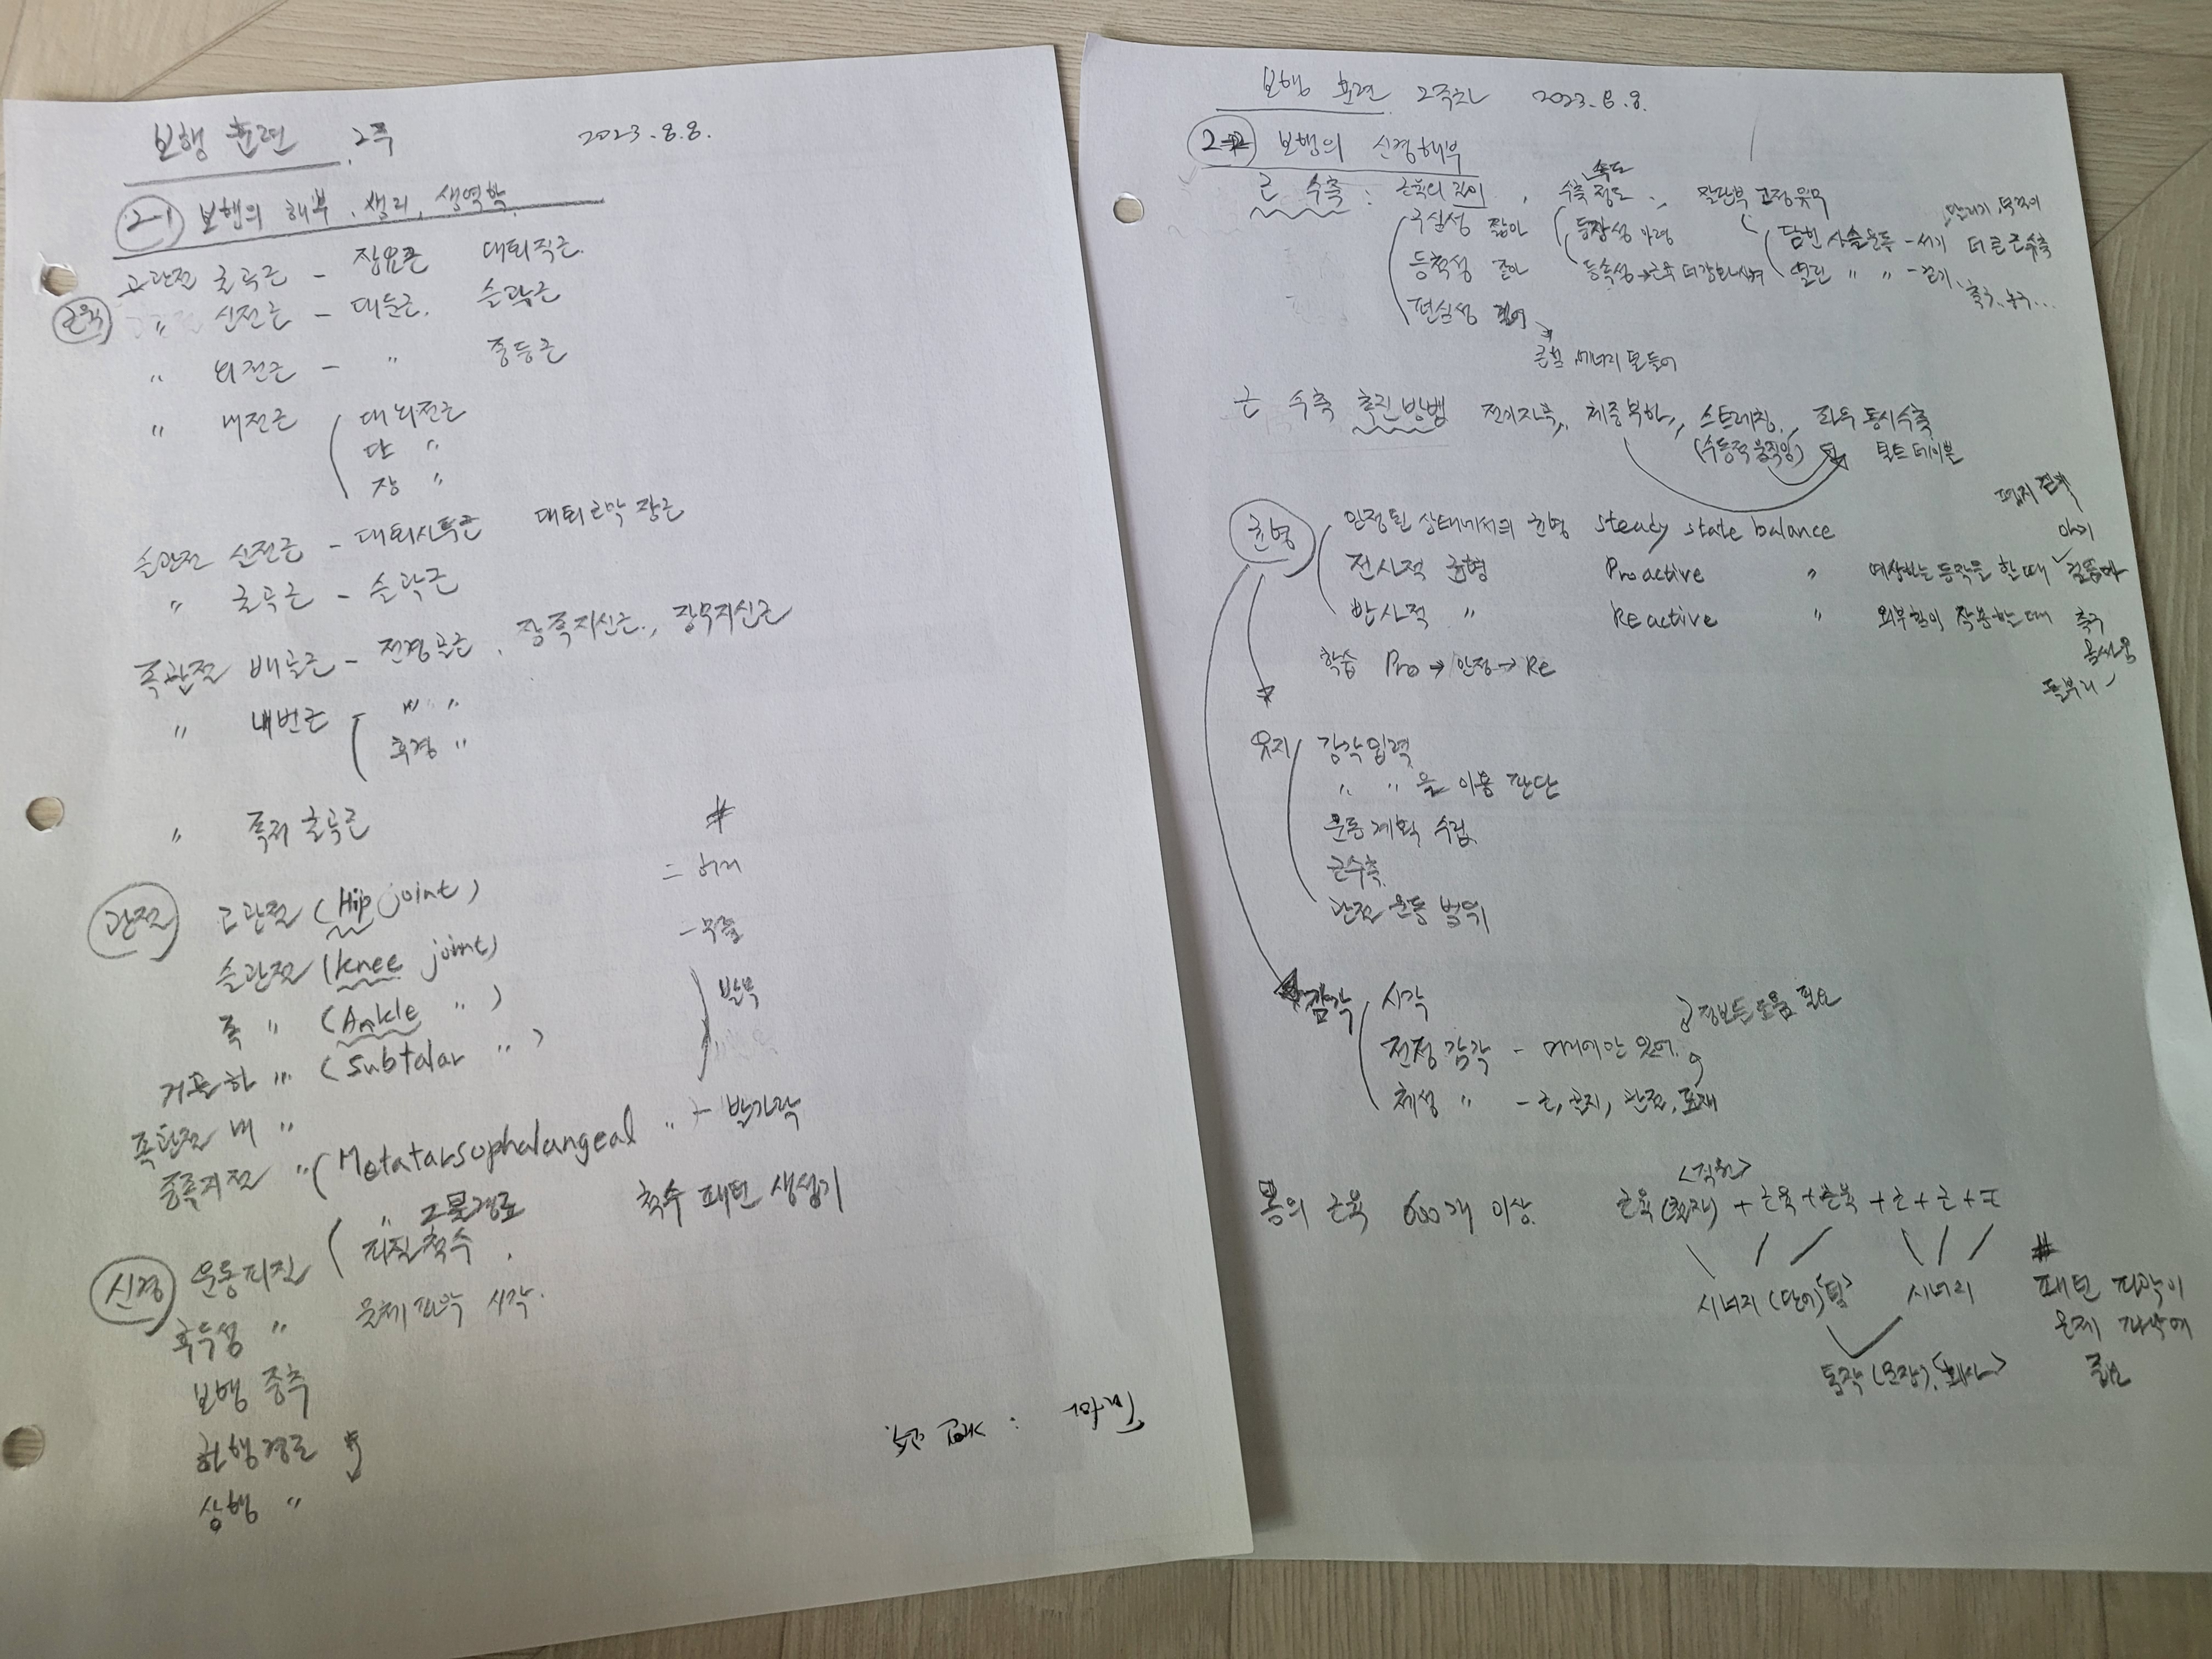 보행 훈련 2주 2023.8.8.
2-1 보행의 해부, 생리, 생역학
근육
고관절 굴곡근 - 장요근 대퇴직근
〃 신전근 - 대둔근, 슬괵근
〃 외전근 - 〃 중둔근
〃 내전근 대뇌전근
단 〃
장 〃
슬관절 신전근 - 대퇴사두근 대퇴근막장근
〃 굴곡근 - 슬괵근
족관절 배굴근 - 전경골근, 장족지신근, 장무지신근
〃 내번근 - 〃 〃
후경 〃
〃 족저굴곡근
#
관절 고관절 (Hip joint) = 허리
슬관절 (knee joint) - 무릎
족 〃 (Ankle 〃) 발목
거골하 〃 (Subtalar 〃)
족관절 내 〃
중족지절 〃 (Metatarsophalangeal 〃 - 발가락
신경 운동피질 피질척수 척수 패턴 생성기
후두성 〃 문제파악 시작.
보행 중추
하행경로
상행 〃
보행 훈련 2주차 2023.8.8.
보행의 신경해부
근 수축 : 근육의 길이, 수축 정도, 속도 말단부 고정유무
구심성 짧아 등장성
등척성 같아 등속성
편심성 길어
닫힌 사슬운동 - 서기 더 큰 근수축
열린 〃 〃 - 걷기, 축구, 농구...
근육, 에너지 만들어
근 수축 촉진방법 전기자극, 체중부하, 스트레칭, 좌우 동시수축
(수동적 움직임) 틸트 테이블
균형 안정된 상태에서의 균형 steady state balance
전사적 균형 Proactive 〃 예상하는 동작을 할 때
반사적 〃 Reactive 〃 외부힘이 작용할 때 축구
몸싸움
돌부리
학습 Pro → 안정 → Re
유지 감각입력
〃 〃 을 이용 판단
운동계획 수립
근수축
관절 운동 범위
감각 시각
전정 감각 - 머리에 안 있어.
체성 〃 - 근, 관절,
몸의 근육 600개 이상.
<직원>
근육 + 근육 + 근육 + 근 + 근 + 근
시너지 (단어) <팀> 시너지
동작 (문장) <회사>
#
패턴 파악이
문제 파악에
필요